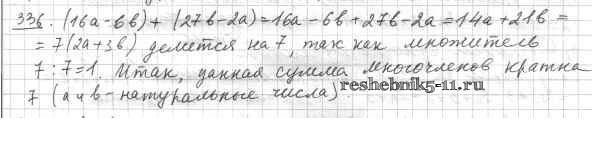 336. (16a-6b)+(27b-2a)=16a-6b+27b-2a=14a+21b=
=7(2a+3b) делится на 7, так как множитель
7:7=1. Итак, данная сумма многочленов кратна
7 (a и b - натуральные числа).
reshebnik5-11.ru